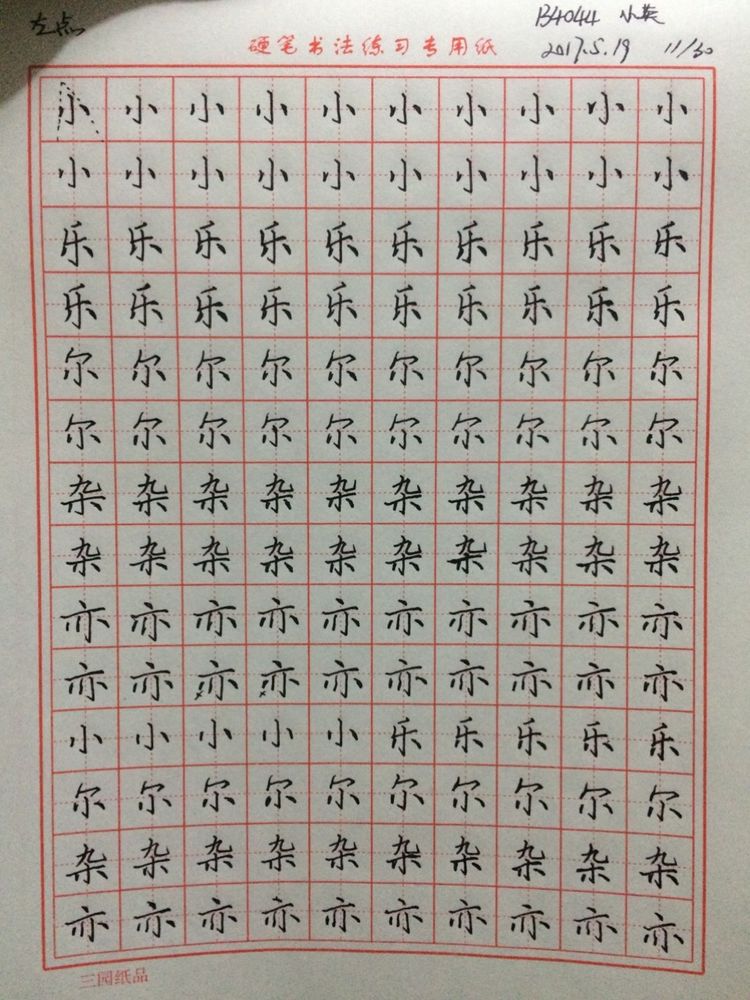 左点
B4044 小英
硬笔书法练习专用纸
2017.5.19 11/30
小小小小小小小小小小
小小小小小小小小小小
乐乐乐乐乐乐乐乐乐乐
乐乐乐乐乐乐乐乐乐乐
尔尔尔尔尔尔尔尔尔尔
尔尔尔尔尔尔尔尔尔尔
杂杂杂杂杂杂杂杂杂杂
杂杂杂杂杂杂杂杂杂杂
亦亦亦亦亦亦亦亦亦亦
亦亦亦亦亦亦亦亦亦亦
小小小小小乐乐乐乐乐
尔尔尔尔尔尔尔尔尔尔
杂杂杂杂杂杂杂杂杂杂
亦亦亦亦亦亦亦亦亦亦
三园纸品